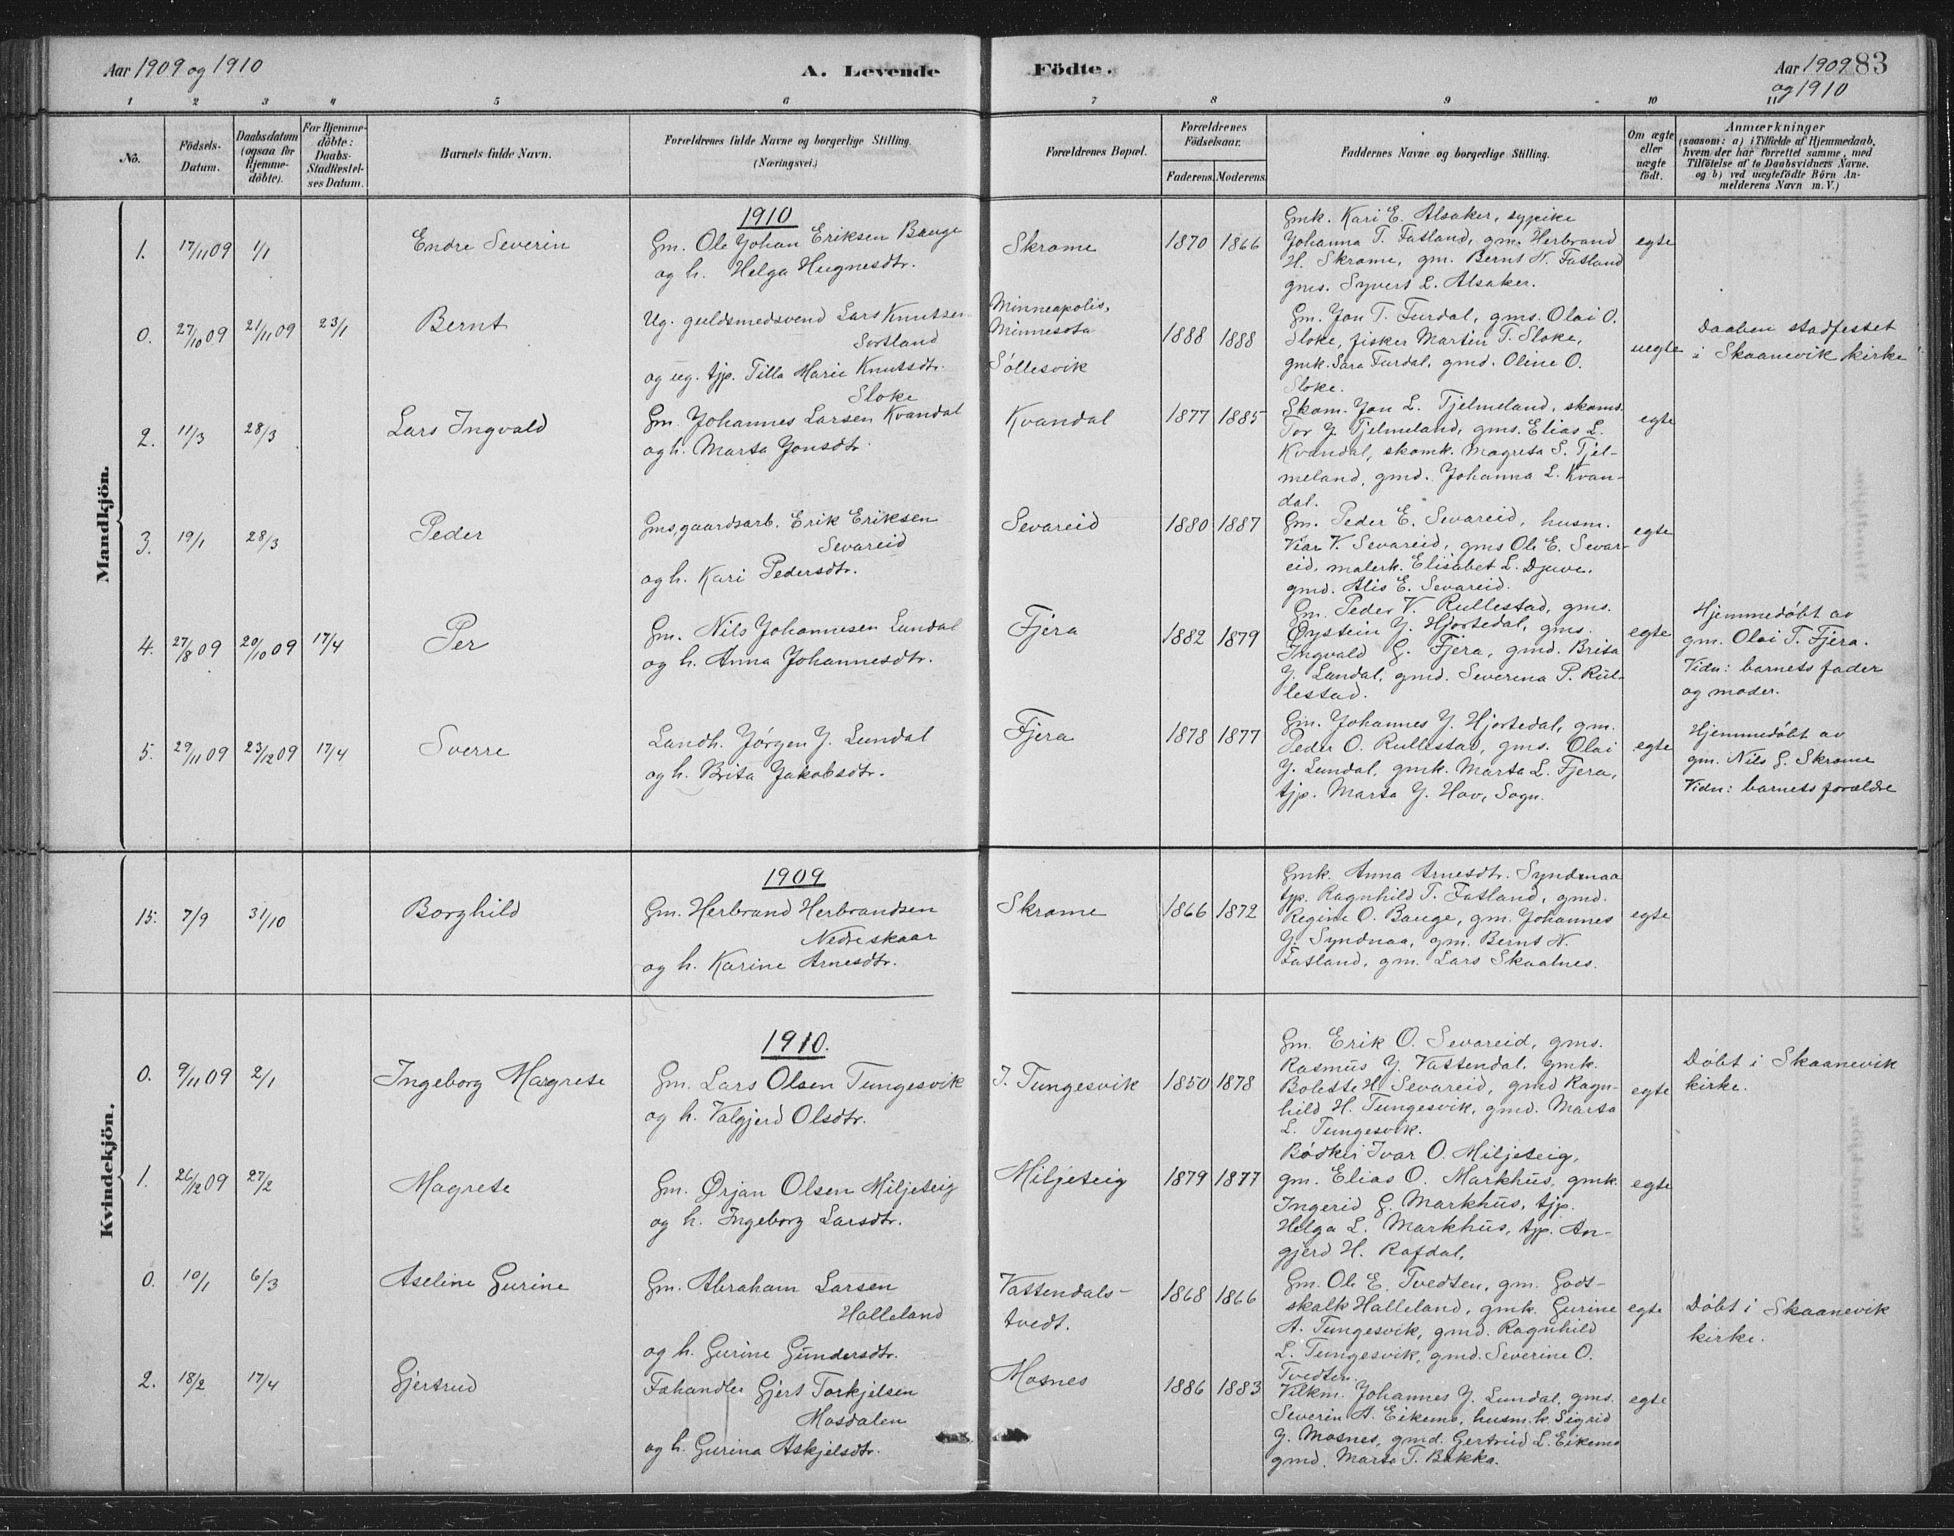 Aar 1909 og 1910
A. Levende Födte.
Aar 1909 83
og 1910
1 2 3 4 5 6 7 8 9 10 11
No.
Födsels-
Datum.
Daabsdatum
(ogsaa for
Hjemme-
döbte).
For Hjemme-
döbte:
Daabs-
Stadfæstel-
ses Datum.
Barnets fulde Navn.
Forældrenes fulde Navne og borgerlige Stilling.
(Næringsvei.)
Forældrenes Bopæl.
Forældrenes
Födselsaar.
Faderens. Moderens.
Faddernes Navne og borgerlige Stilling.
Om ægte
eller
uægte
födt.
Anmærkninger
(saasom: a) i Tilfælde af Hjemmedaab,
hvem der har forrettet samme, med
Tilföielse af to Daabsvidners Navne.
og b) ved uægtefödte Börn An-
melderens Navn m. V.)
Mandkjön.
1910
1. 17/11 09 1/1 Endre Severin
Gm. Ole Johan Eriksen Bauge
og h. Helga Hugnesdtr.
Skrome 1870 1866
Gmk. Kari E. Alsaker, sypike
Johanna T. Fatland, gm. Herbrand
H. Skrome, gm. Bernt N. Fatland
gms. Syvert L. Alsaker.
egte
0. 27/10 09 21/11 09 23/1 Bernt
Ug. guldsmedsvend Lars Knutsen
Sortland
og ug. tjp. Tilla Marie Knutsdtr.
Sloke
Minneapolis,
Minnesota
Söllesvik
1888 1888
Gm. Jon T. Furdal, gms. Olai O.
Sloke, fisker Martin T. Sloke,
gmk. Sara Furdal, gmd. Oline O.
Sloke.
uegte
Daaben stadfestet
i Skaanevik kirke
2. 11/3 28/3 Lars Ingvald
Gm. Johannes Larsen Kvandal
og h. Marta Jonsdtr.
Kvandal 1877 1885
Skom. Jon L. Tjelmeland, skoms.
Tor J. Tjelmeland, gms. Elias L.
Kvandal, skomk. Magreta S. Tjel-
meland, gmd. Johanna L. Kvan-
dal.
egte
3. 19/1 28/3 Peder
Gms, gaardsarb. Erik Eriksen
Sevareid
og h. Kari Pedersdtr.
Sevareid 1880 1887
Gm. Peder E. Sevareid, husm.
Vier V. Sevareid, gms Ole E. Sevar-
eid, malerk. Elisabet L. Djuve,
gmd. Alis E. Sevareid.
egte
4. 27/8 09 20/10 09 17/4 Per
Gm. Nils Johannesen Lundal
og h. Anna Johannesdtr.
Fjera 1882 1879
Gm. Peder V. Rullestad, gms.
Øystein J. Hjortedal, gms.
Ingvald G. Fjera, gmd. Brita
J. Lundal, gmd. Severina P. Rul-
lestad.
egte
Hjemmedøbt av
gm. Olai T. Fjera.
Vidn: barnets fader
og moder.
5. 29/11 09 23/12 09 17/4 Sverre
Landh. Jørgen J. Lundal
og h. Brita Jakobsdtr.
Fjera 1878 1877
Gm. Johannes J. Hjortedal, gm.
Peder O. Rullestad, gms. Olai
J. Lundal, gmk. Marta L. Fjera,
tjp. Marta J. Hov, Sogn.
egte
Hjemmedøbt av
gm. Nils G. Skrome
Vidn: barnets forældre
Kvindekjön.
1909
15. 7/9 31/10 Borghild
Gm. Herbrand Herbrandsen
Nedreskaar
og h. Karine Arnesdtr.
Skrome 1866 1872
Gmk. Anna Arnesdtr. Syndnaa
tjp. Ragnhild T. Fatland, gmd.
Regine O. Bauge, gm. Johannes
J. Syndnaa, gm. Bernt N.
Fatland, gm. Lars Skaalnes.
egte
1910.
0. 9/11 09 2/1 Ingeborg Margrete
Gm. Lars Olsen Tungesvik
og h. Valgjerd Olsdtr.
I. Tungesvik 1850 1878
Gm. Erik O. Sevareid, gms.
Rasmus J. Vattendal, gmk.
Bolette H. Sevareid, gmd Ragn-
hild H. Tungesvik, gmd. Marta
L. Tungesvik.
egte
Døbt i Skaanevik
kirke.
1. 26/12 09 27/2 Magrete
Gm. Ørjan Olsen Miljeteig
og h. Ingeborg Larsdtr.
Miljeteig 1879 1877
Bødker Ivar O. Miljeteig,
gm. Elias O. Markhus, gmk.
Ingerid G. Markhus, tjp.
Helga L. Markhus, tjp. An-
gjerd H. Rafdal.
egte
0. 10/1 6/3 Aseline Gurine
Gm. Abraham Larsen
Halleland
og h. Gurine Gundersdtr.
Vattendals-
tvedt.
1868 1866
Gm. Ole E. Tvedten, gm. Gods-
skalk Halleland, gmk. Gurine
A. Tungesvik, gmd. Ragnhild
L. Tungesvik, gmd. Severine O.
Tvedten.
egte
Døbt i Skaanevik
kirke.
2. 18/2 17/4 Gjertrud
Fahandler Gjert Torkjelsen
Mosdalen
og h. Gurina Askjelsdtr.
Mosnes 1886 1883
Johannes J. Lundal, gms.
Severin A. Eikemo, husm.k. Sigrid
J. Mosnes, gmd. Gertrud L. Eikemo
gmd. Marta T. Bakka.
egte